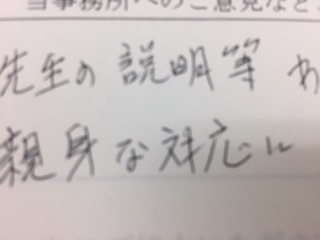 当事務所へのご意見など
先生の説明等 わ
親身な対応に